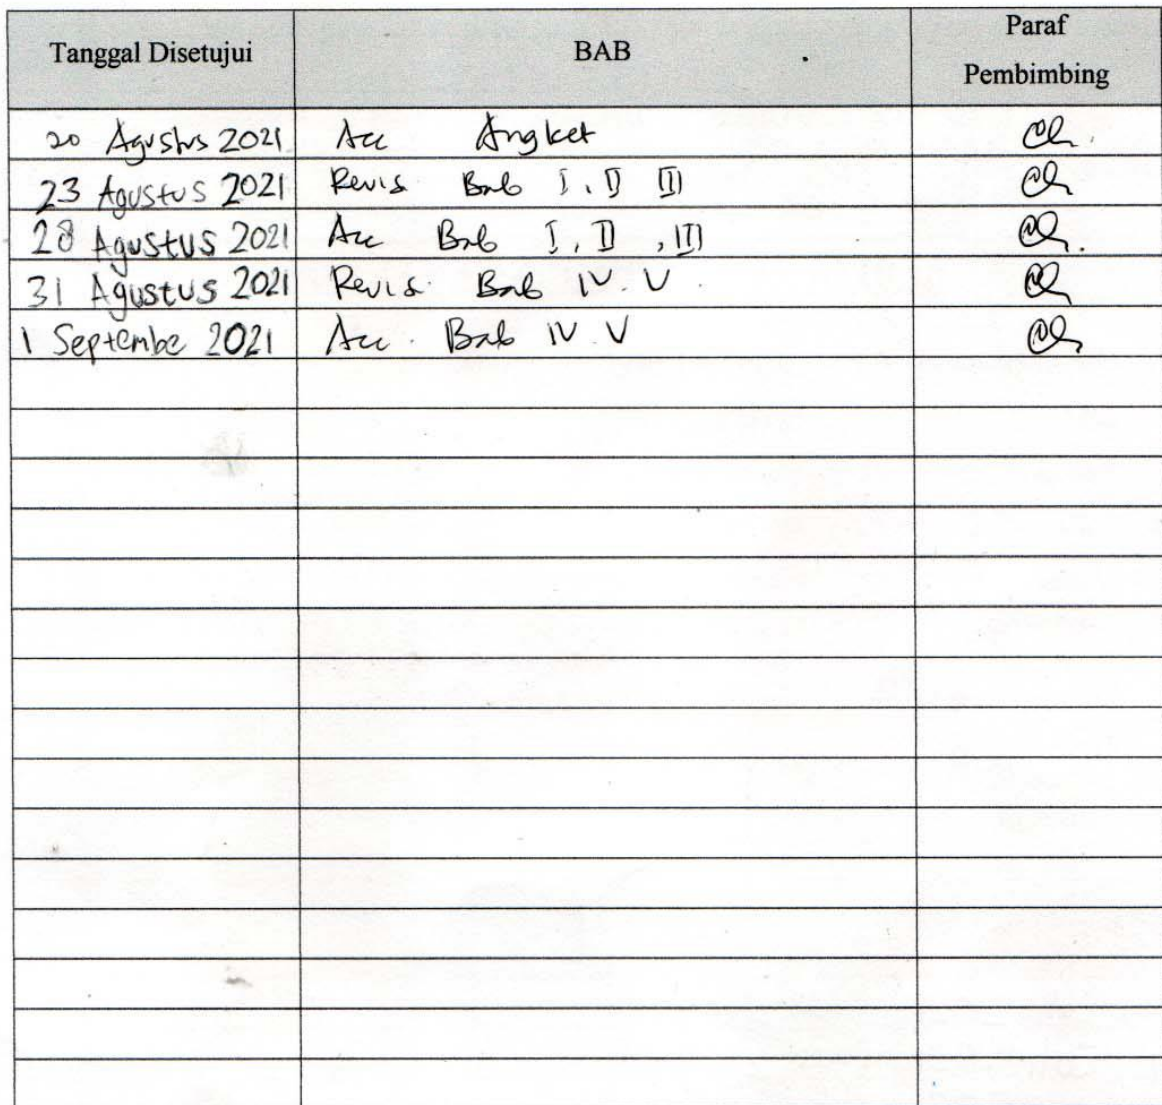 Tanggal Disetujui BAB Paraf
Pembimbing
20 Agustus 2021 Acc Angket
23 Agustus 2021 Revis Bab I, II III
28 Agustus 2021 Acc Bab I, II, III
31 Agustus 2021 Revis Bab IV. V.
1 Septembe 2021 Acc. Bab IV V